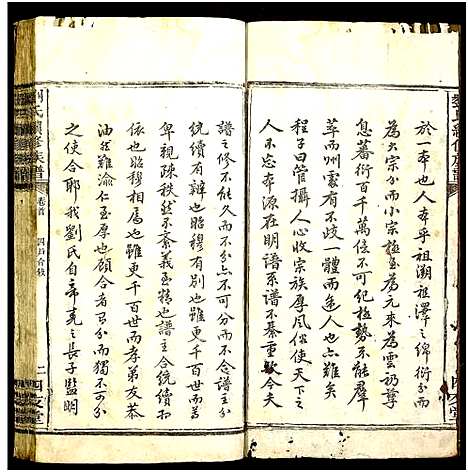 於一本也人本乎祖溯祖澤之綿衍分
為大宗分而小宗極至為元來為雲礽孳
息蕃衍百千萬億不可紀極勢不能群
萃而州處有不歧一體而途人也亦難矣
曰管攝人心收宗族厚風俗使天下之
人不忘本源在明譜系譜顧不綦重歟今夫
譜之修不能久而不分亦不可分而不合譜以
統續有辨也昭穆有別也雖更千百世而尊
卑親疎秩然不紊義至精也譜之合統續有
依也昭穆相屬也雖更千百世而兄弟友恭
油然難渝仁至厚也顧合者易分而難
之使合耶我劉氏自帝堯之長子監明
劉氏續修族譜
卷首
四戶合敘
二
四友堂